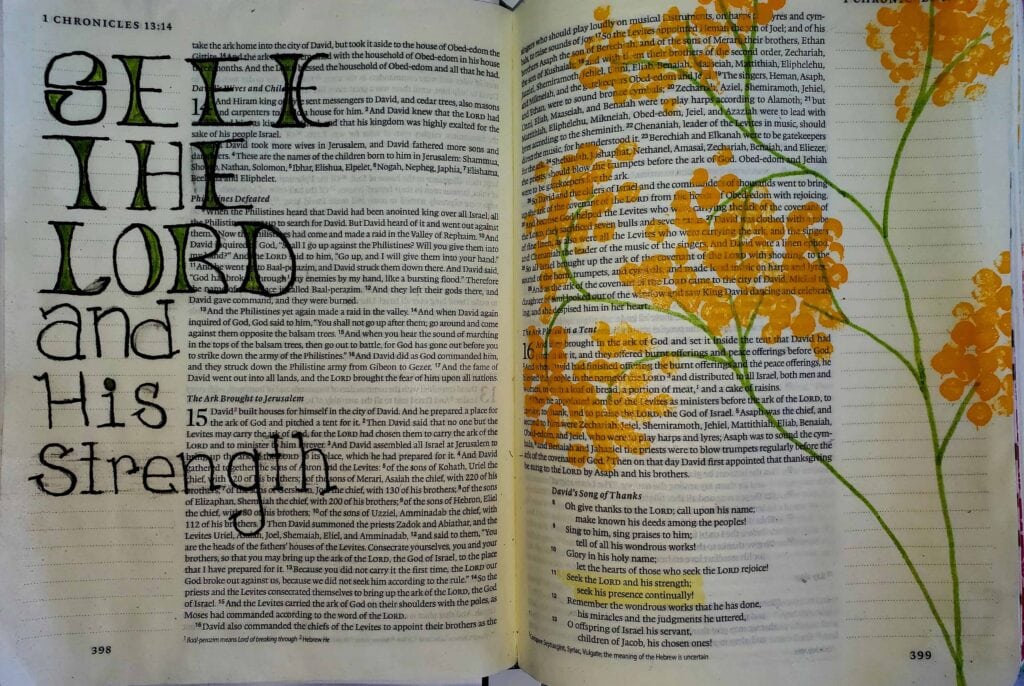 1 CHRONICLES 13:14
SEEK
THE
LORD
and
His
Strength
take the ark home into the city of David, but took it aside to the house of Obed-edom the
with the household of Obed-edom in his house
months. And the blessed the household of Obed-edom and all that he had.
Wives and
14 And Hiram king of sent messengers to David, and cedar trees, also masons
carpenters to house for him. ²And David knew that the LORD had
and that his kingdom was highly exalted for the
sake of his people Israel.
David took more wives in Jerusalem, and David fathered more sons and
⁴These are the names of the children born to him in Jerusalem: Shammua,
Nathan, Solomon, ⁵Ibhar, Elishua, Elpelet, ⁶Nogah, Nepheg, Japhia, ⁷Elishama,
and Eliphelet.
Philistines Defeated
⁸When the Philistines heard that David had been anointed king over all Israel, all
the Philistines went up to search for David. But David heard of it and went out against
Now the had come and made a raid in the Valley of Rephaim. ¹⁰And
David inquired of God, "Shall I go up against the Philistines? Will you give them into
my hand?" And the LORD said to him, "Go up, and I will give them into your hand."
¹¹And he went up to Baal-perazim, and David struck them down there. And David said,
"God has broken through my enemies by my hand, like a bursting flood." Therefore
the name of place is called Baal-perazim. ¹²And they left their gods there, and
David gave command, and they were burned.
¹³And the Philistines yet again made a raid in the valley. ¹⁴And when David again
inquired of God, God said to him, "You shall not go up after them; go around and come
against them opposite the balsam trees. ¹⁵And when you hear the sound of marching
in the tops of the balsam trees, then go out to battle, for God has gone out before you
to strike down the army of the Philistines." ¹⁶And David did as God commanded him,
and they struck down the Philistine army from Gibeon to Gezer. ¹⁷And the fame of
David went out into all lands, and the LORD brought the fear of him upon all nations.
The Ark Brought to Jerusalem
15 David built houses for himself in the city of David. And he prepared a place for
the ark of God and pitched a tent for it. ²Then David said that no one but the
Levites may carry the ark of God, for the LORD had chosen them to carry the ark of the
LORD and to minister to him forever. ³And David assembled all Israel at Jerusalem to
bring up the ark of the LORD to its place, which he had prepared for it. ⁴And David
gathered together the sons of Aaron and the Levites: ⁵of the sons of Kohath, Uriel the
chief, with 120 of his brothers; ⁶of the sons of Merari, Asaiah the chief, with 220 of his
brothers; ⁷of the sons of Gershom, Joel the chief, with 130 of his brothers; ⁸of the sons
of Elizaphan, Shemaiah the chief, with 200 of his brothers; ⁹of the sons of Hebron, Eliel
the chief, with 80 of his brothers; ¹⁰of the sons of Uzziel, Amminadab the chief, with
112 of his brothers. ¹¹Then David summoned the priests Zadok and Abiathar, and the
Levites Uriel, Asaiah, Joel, Shemaiah, Eliel, and Amminadab, ¹²and said to them, "You
are the heads of the fathers' houses of the Levites. Consecrate yourselves, you and your
brothers, so that you may bring up the ark of the LORD, the God of Israel, to the place
that I have prepared for it. ¹³Because you did not carry it the first time, the LORD our
God broke out against us, because we did not seek him according to the rule." ¹⁴So the
priests and the Levites consecrated themselves to bring up the ark of the LORD, the God
of Israel. ¹⁵And the Levites carried the ark of God on their shoulders with the poles, as
Moses had commanded according to the word of the LORD.
¹⁶David also commanded the chiefs of the Levites to appoint their brothers as the
¹ Baal-perazim means Lord of breaking through ² Hebrew He
398
1 CHRONIC
singers who should play loudly on musical instruments, on harps lyres and cym-
raise sounds of joy. ¹⁷So the Levites appointed Heman the son of Joel; and of his
brothers Asaph the son of Berechiah; and of the sons of Merari, their brothers, Ethan
the son of Kushaiah; ¹⁸and with them their brothers of the second order, Zechariah,
Jehiel, Unni, Eliab, Benaiah, Maaseiah, Mattithiah, Eliphelehu,
Mikneiah, and the gatekeepers Obed-edom and ¹⁹The singers, Heman, Asaph,
and Ethan, were to sound bronze cymbals; ²⁰Zechariah, Aziel, Shemiramoth, Jehiel,
Unni, Eliab, Maaseiah, and Benaiah were to play harps according to Alamoth; ²¹but
Mattithiah, Eliphelehu, Mikneiah, Obed-edom, Jeiel, and Azaziah were to lead with
lyres according to the Sheminith. ²²Chenaniah, leader of the Levites in music, should
direct the music, for he understood it. ²³Berechiah and Elkanah were to be gatekeepers
Joshaphat, Nethanel, Amasai, Zechariah, Benaiah, and Eliezer,
the priests, should blow the trumpets before the ark of God. Obed-edom and Jehiah
were to be gatekeepers for the ark.
²⁵So David and the elders of Israel and the commanders of thousands went to bring
up the ark of the covenant of the LORD from the house of Obed-edom with rejoicing.
because God helped the Levites who were carrying the ark of the covenant of
the LORD, they sacrificed seven bulls and seven was clothed with a robe
of fine linen, the Levites who were carrying the ark, and the singers
and Chenaniah the leader of the music of the singers. And David wore a linen ephod.
²⁸So all Israel brought up the ark of the covenant of the LORD with shouting, to the
sound of the horn, trumpets, and cymbals, and made loud music on harps and lyres.
²⁹And as the ark of the covenant of the LORD came to the city of David, Michal the
daughter of Saul looked out of the window and saw King David dancing and celebrat-
ing, and she despised him in her heart.
The Ark Placed in a Tent
16 And they brought in the ark of God and set it inside the tent that David had
for it, and they offered burnt offerings and peace offerings before God.
had finished offering the burnt offerings and the peace offerings, he
blessed the people in the name of the LORD ³and distributed to all Israel, both men and
women, to each a loaf of bread, a portion of meat, and a cake of raisins.
⁴Then he appointed some of the Levites as ministers before the ark of the LORD, to
to thank, and to praise the LORD, the God of Israel. ⁵Asaph was the chief, and
second to him were Zechariah, Jeiel, Shemiramoth, Jehiel, Mattithiah, Eliab, Benaiah,
Obed-edom, and Jeiel, who were to play harps and lyres; Asaph was to sound the cym-
bals, ⁶and Benaiah and Jahaziel the priests were to blow trumpets regularly before the
ark of the covenant of God. ⁷Then on that day David first appointed that thanksgiving
be sung to the LORD by Asaph and his brothers.
David's Song of Thanks
⁸ Oh give thanks to the LORD; call upon his name;
make known his deeds among the peoples!
⁹ Sing to him, sing praises to him;
tell of all his wondrous works!
¹⁰ Glory in his holy name;
let the hearts of those who seek the LORD rejoice!
¹¹ Seek the LORD and his strength;
seek his presence continually!
¹² Remember the wondrous works that he has done,
his miracles and the judgments he uttered,
¹³ O offspring of Israel his servant,
children of Jacob, his chosen ones!
¹ Compare Septuagint, Syriac, Vulgate; the meaning of the Hebrew is uncertain
399